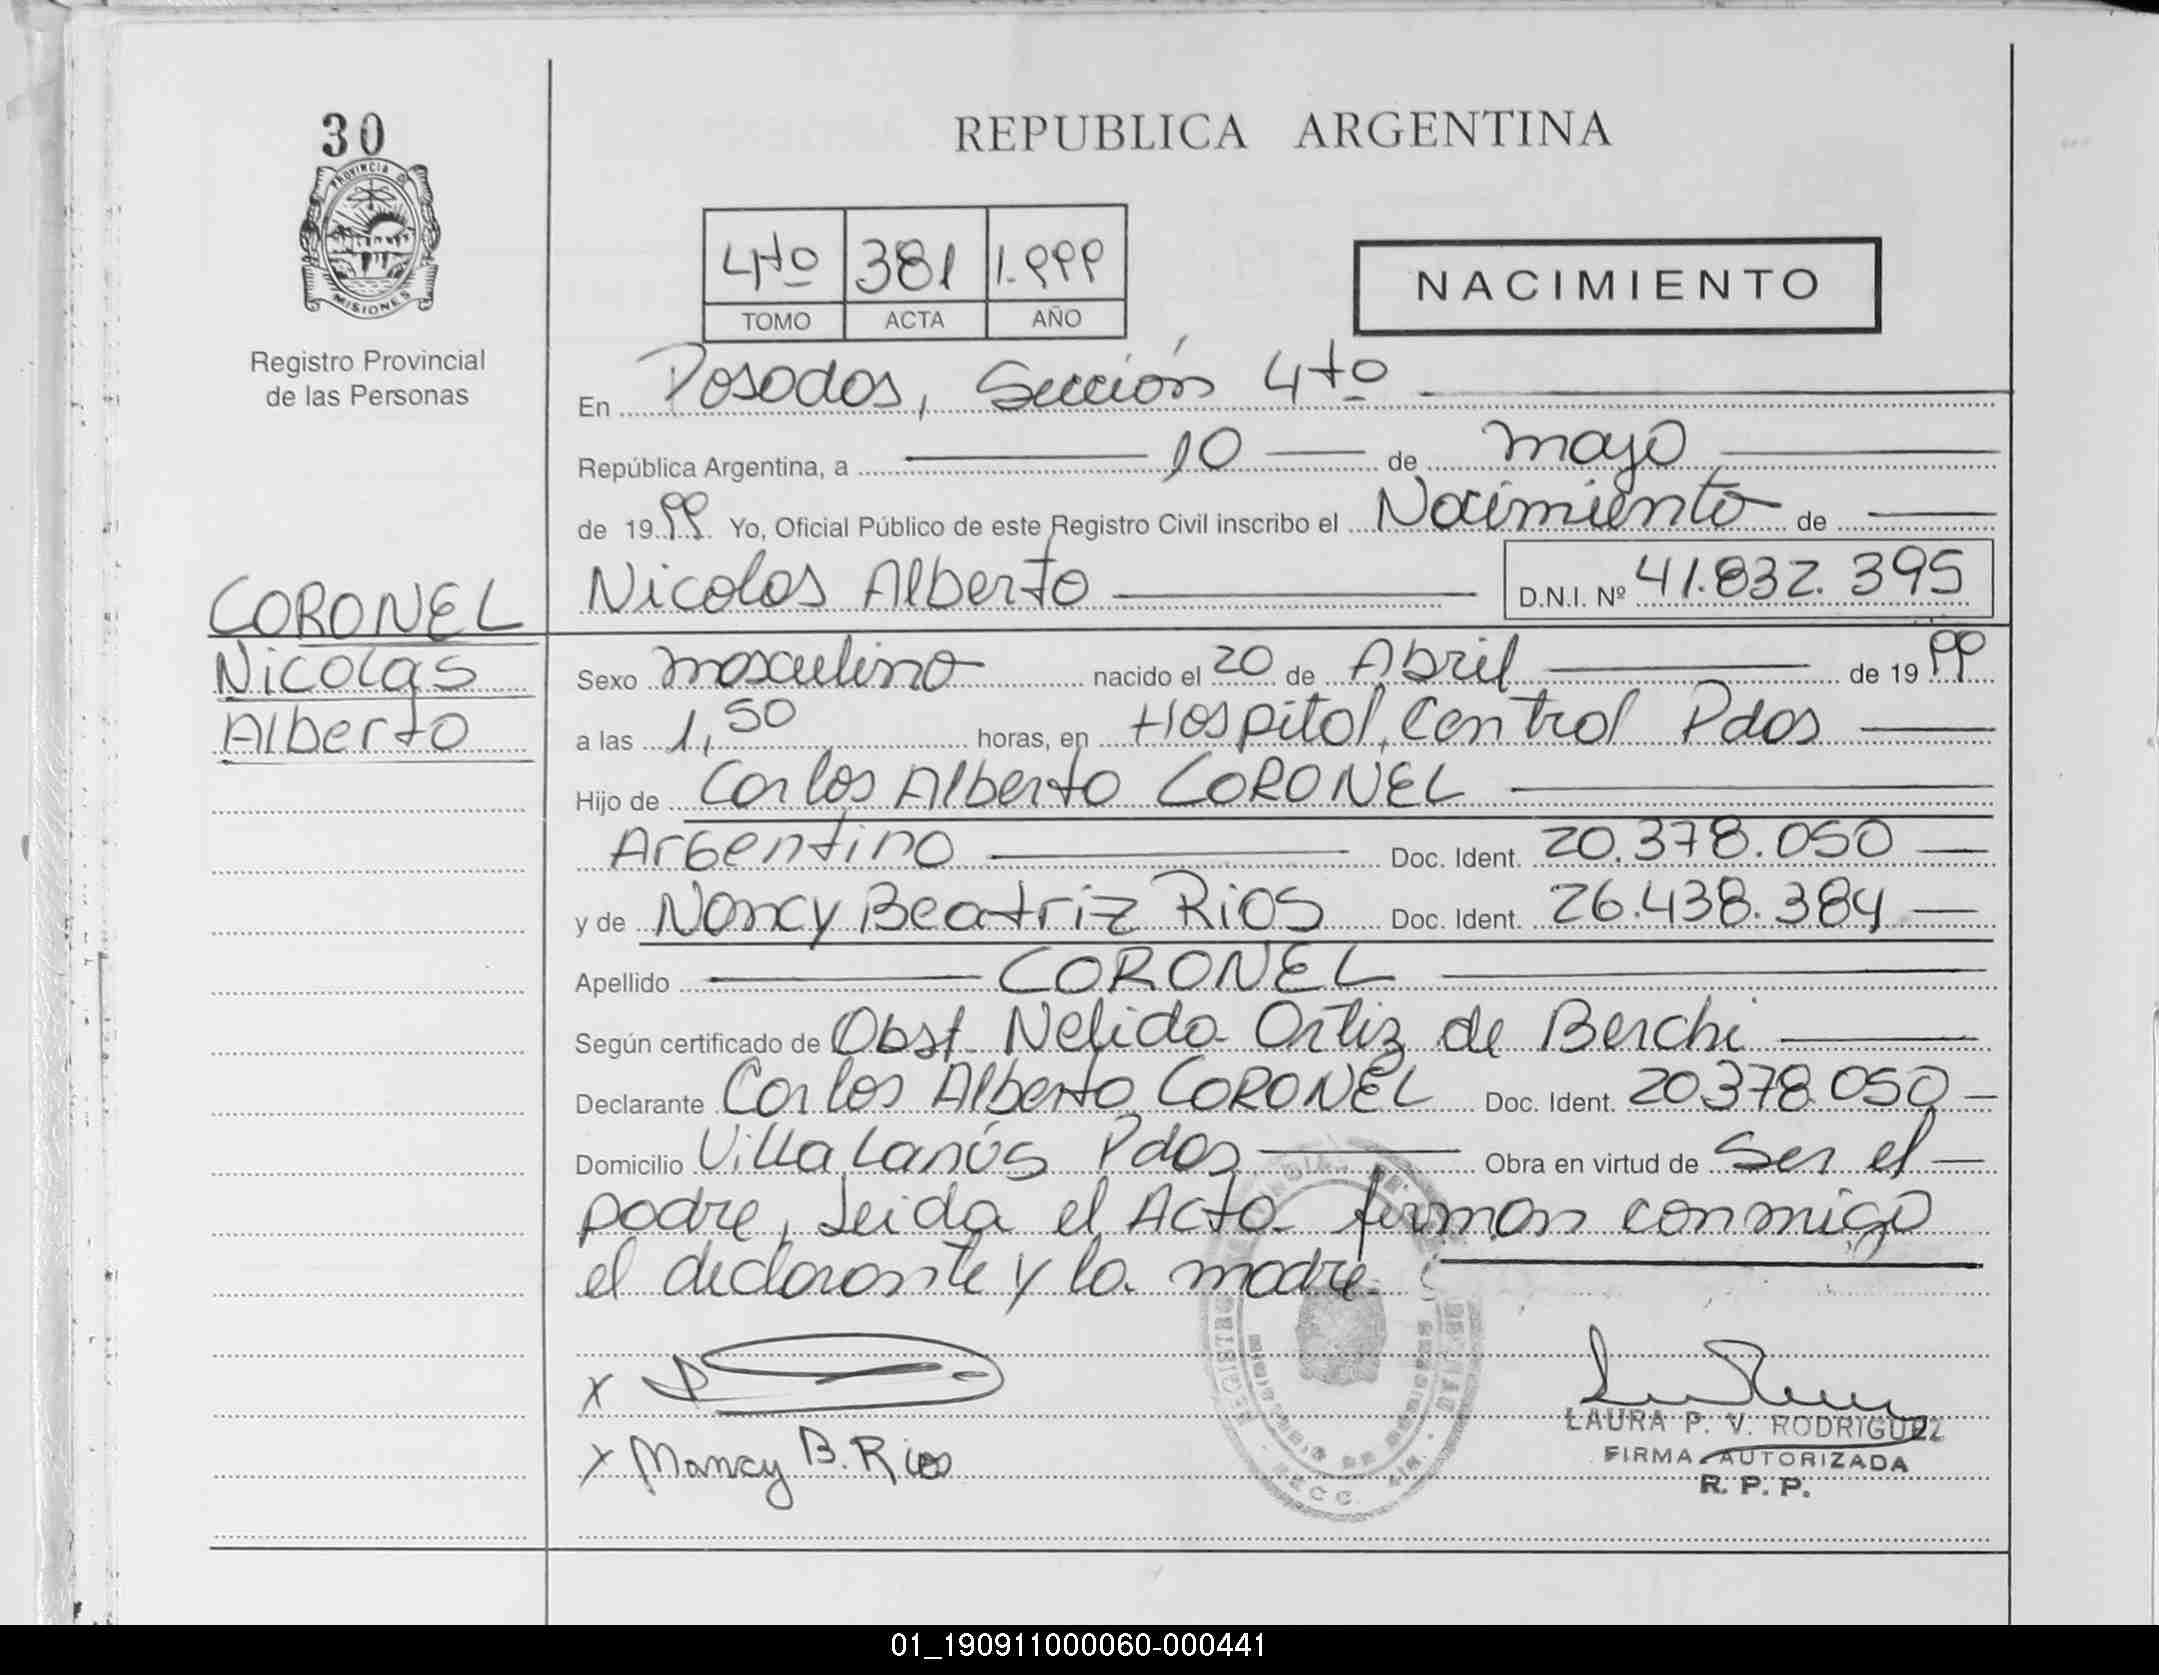 30
PROVINCIA D
MISIONES
Registro Provincial
de las Personas
REPUBLICA ARGENTINA
4to 381 1.999
TOMO ACTA AÑO
NACIMIENTO
En Posadas, Sección 4to
República Argentina, a 10 de mayo
de 1999 Yo, Oficial Público de este Registro Civil inscribo el Nacimiento de
Nicolas Alberto D.N.I. Nº 41.832.395
CORONEL
Nicolas
Alberto
Sexo masculino nacido el 20 de Abril de 1999
a las 1,50 horas, en Hospital Central Pdas
Hijo de Carlos Alberto CORONEL
Argentino Doc. Ident. 20.378.050
y de Nancy Beatriz Rios Doc. Ident. 26.438.384
Apellido CORONEL
Según certificado de Obst Nelida Ortiz de Berchi
Declarante Carlos Alberto CORONEL Doc. Ident. 20.378.050
Domicilio Villa Lanús Pdas Obra en virtud de Ser el
padre, Leida el Acta firman conmigo
el declarante y la madre
X
X Nancy B. Rios
LAURA P. V. RODRIGUEZ
FIRMA AUTORIZADA
R. P. P.
01_190911000060-000441